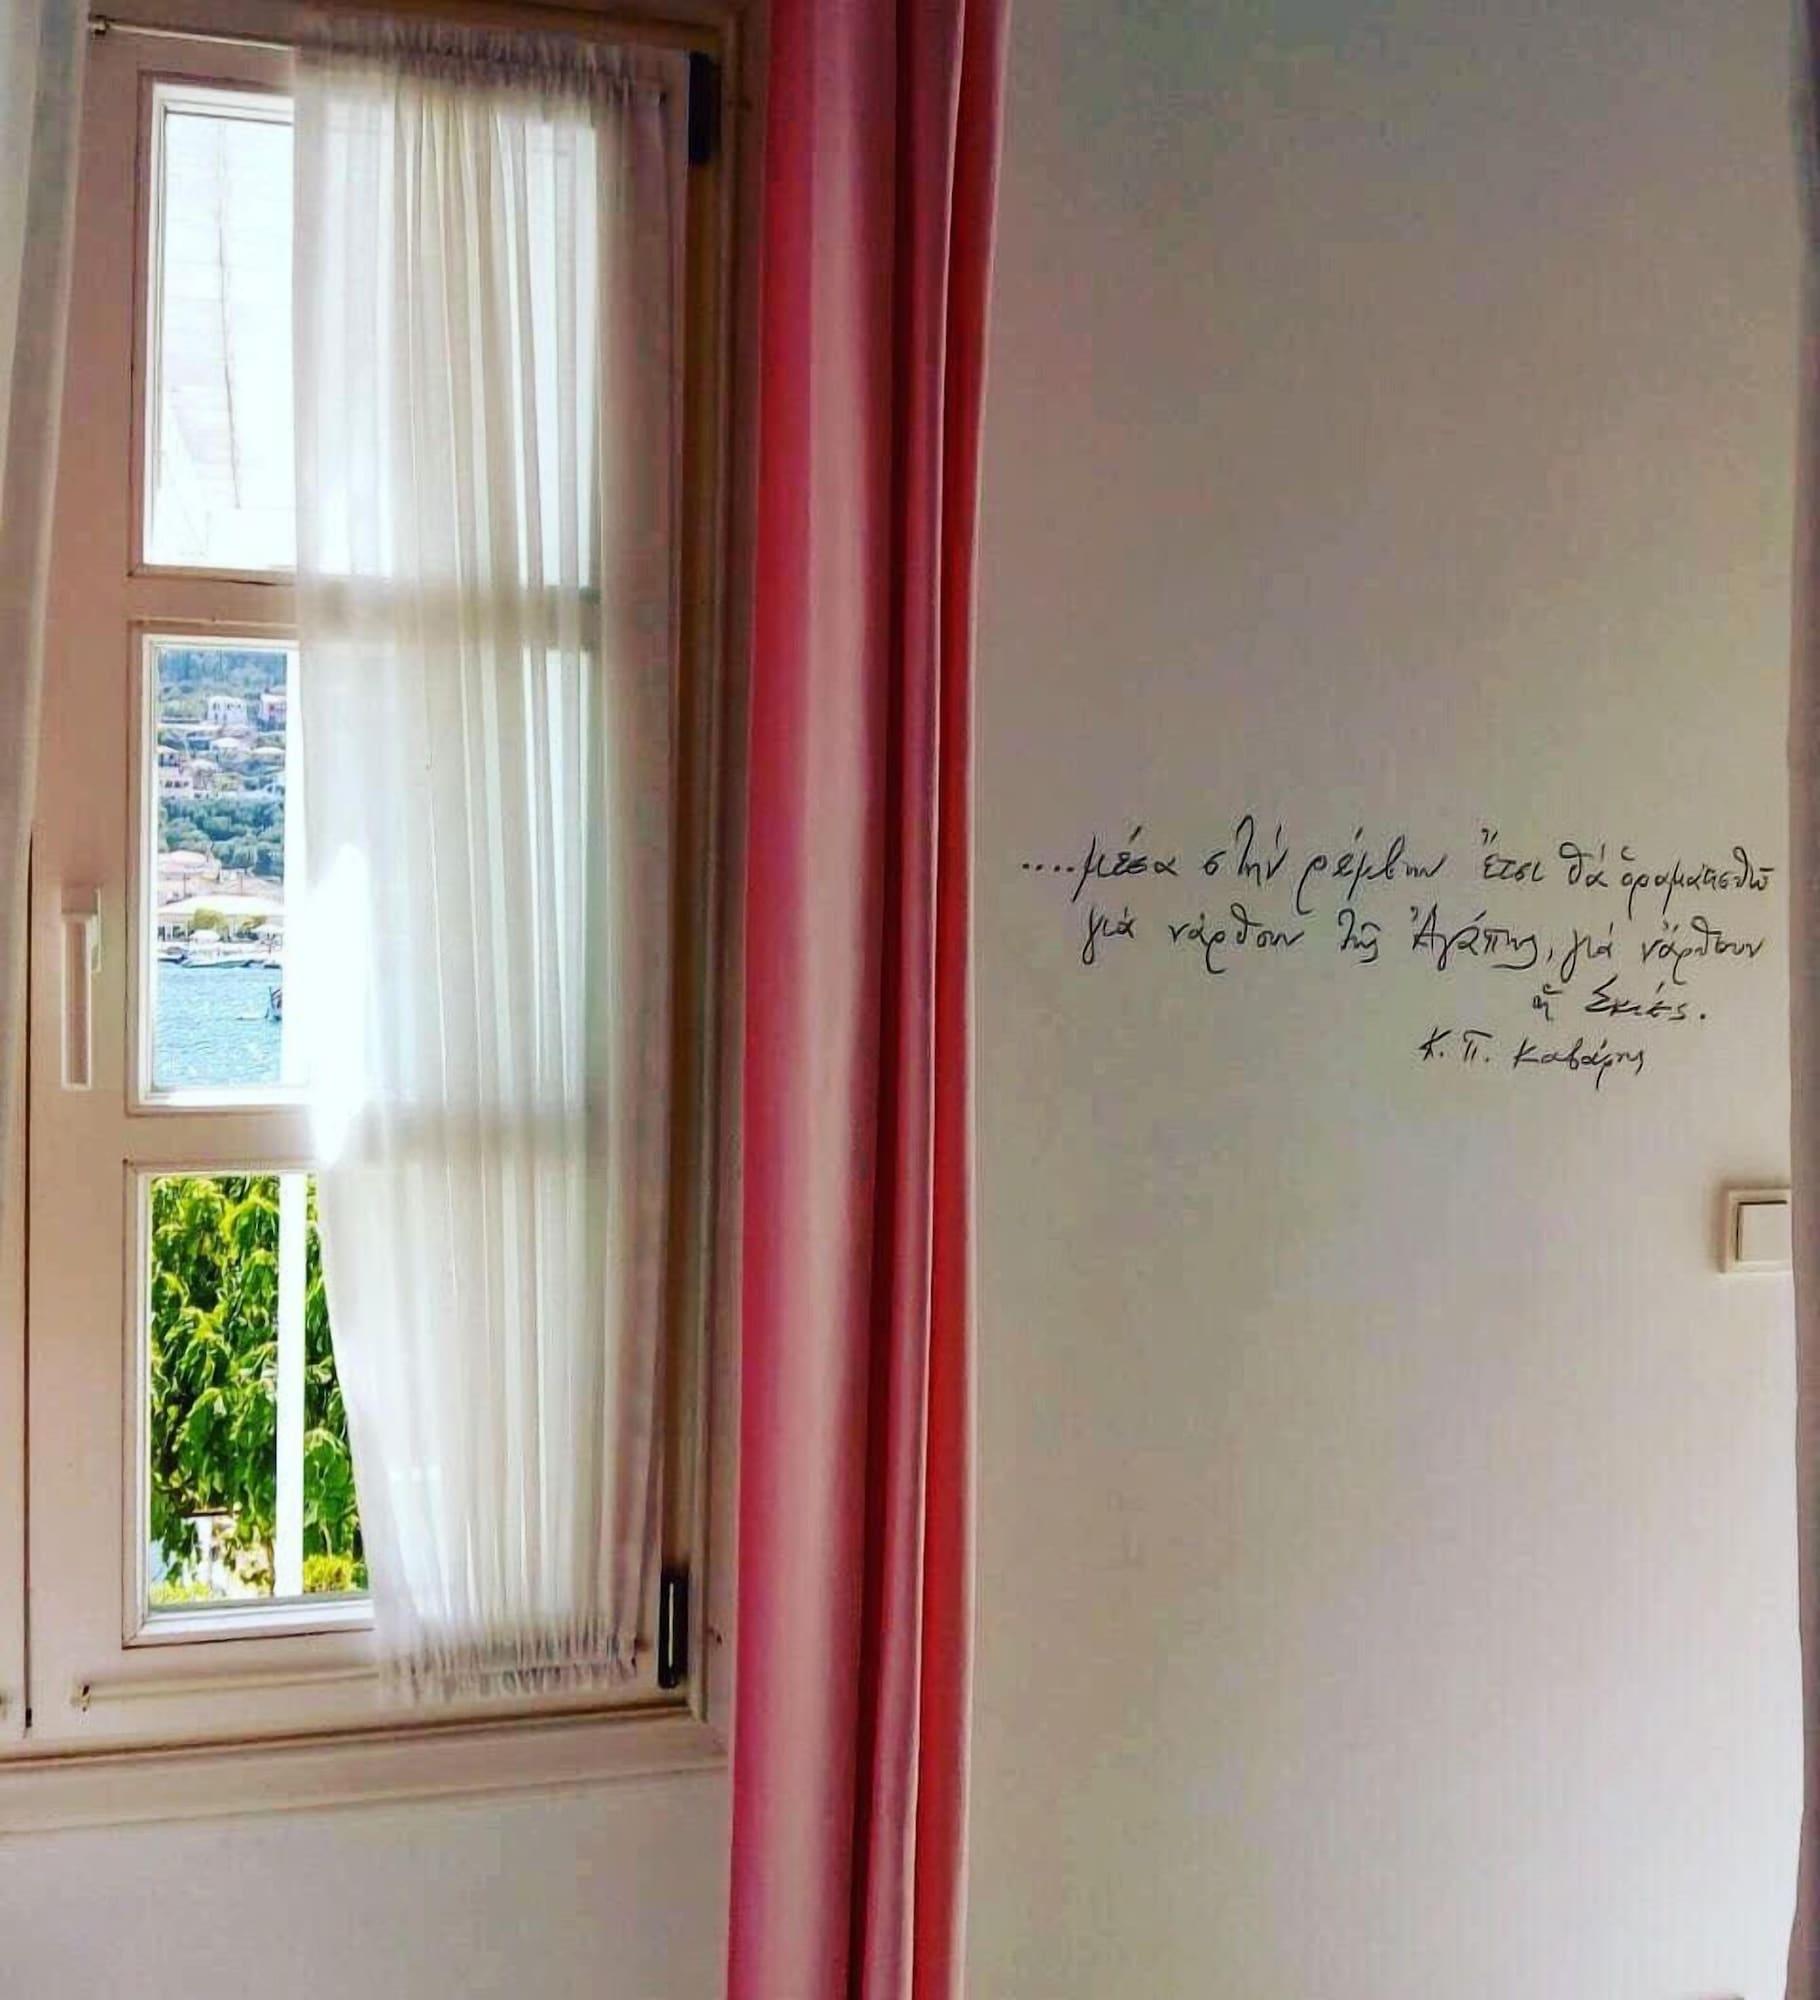 ....μέσα στὴν ρέμβην ἔτσι θὰ ὁραματισθῶ
γιά νάρθουν τῆς Ἀγάπης, γιά νἄρθουν
ἡ Σκιές.
Κ. Π. Καβάφης